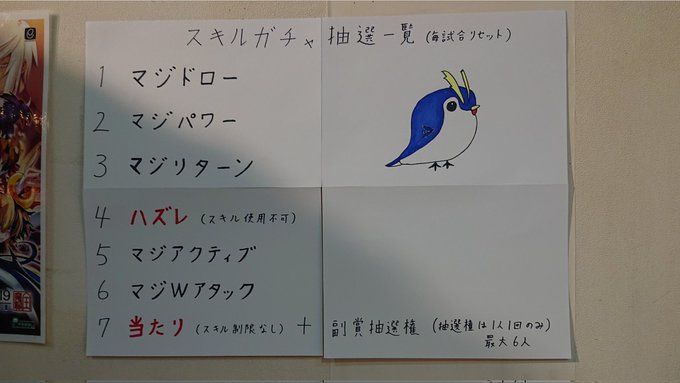 スキルガチャ抽選一覧(毎試合リセット)
1 マジドロー
2 マジパワー
3 マジリターン
4 ハズレ(スキル使用不可)
5 マジアクティブ
6 マジWアタック
7 当たり(スキル制限なし) + 副賞抽選権(抽選権は1人1回のみ)
最大6人